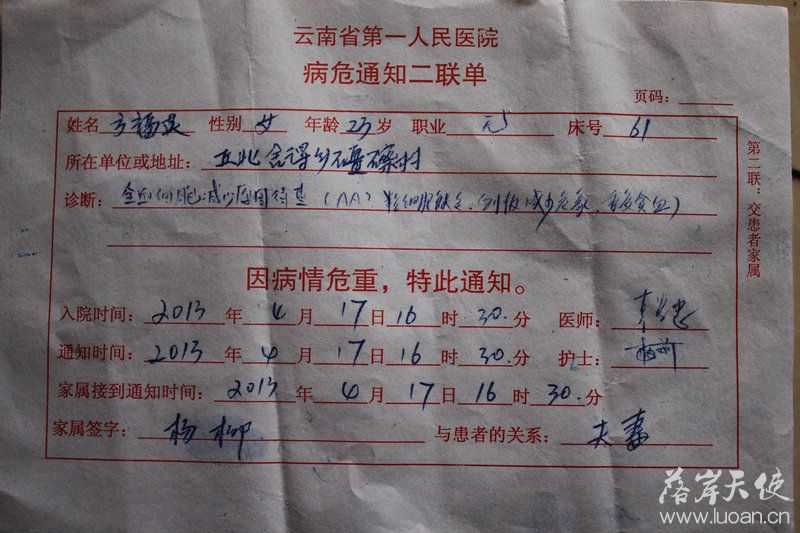 云南省第一人民医院
病危通知二联单
页码：
姓名 方福灵 性别 女 年龄 23 岁 职业 无 床号 61
所在单位或地址： 丘北舍得乡
诊断： 全血细胞减少原因待查（AA）粒细胞缺乏、血小板减少危象、重度贫血）
因病情危重，特此通知。
入院时间： 2013 年 4 月 17 日 16 时 30 分 医师：
通知时间： 2013 年 4 月 17 日 16 时 30 分 护士：
家属接到通知时间： 2013 年 4 月 17 日 16 时 30 分
家属签字： 杨柳 与患者的关系： 夫妻
第二联：交患者家属
落岸天使
www.luoan.cn